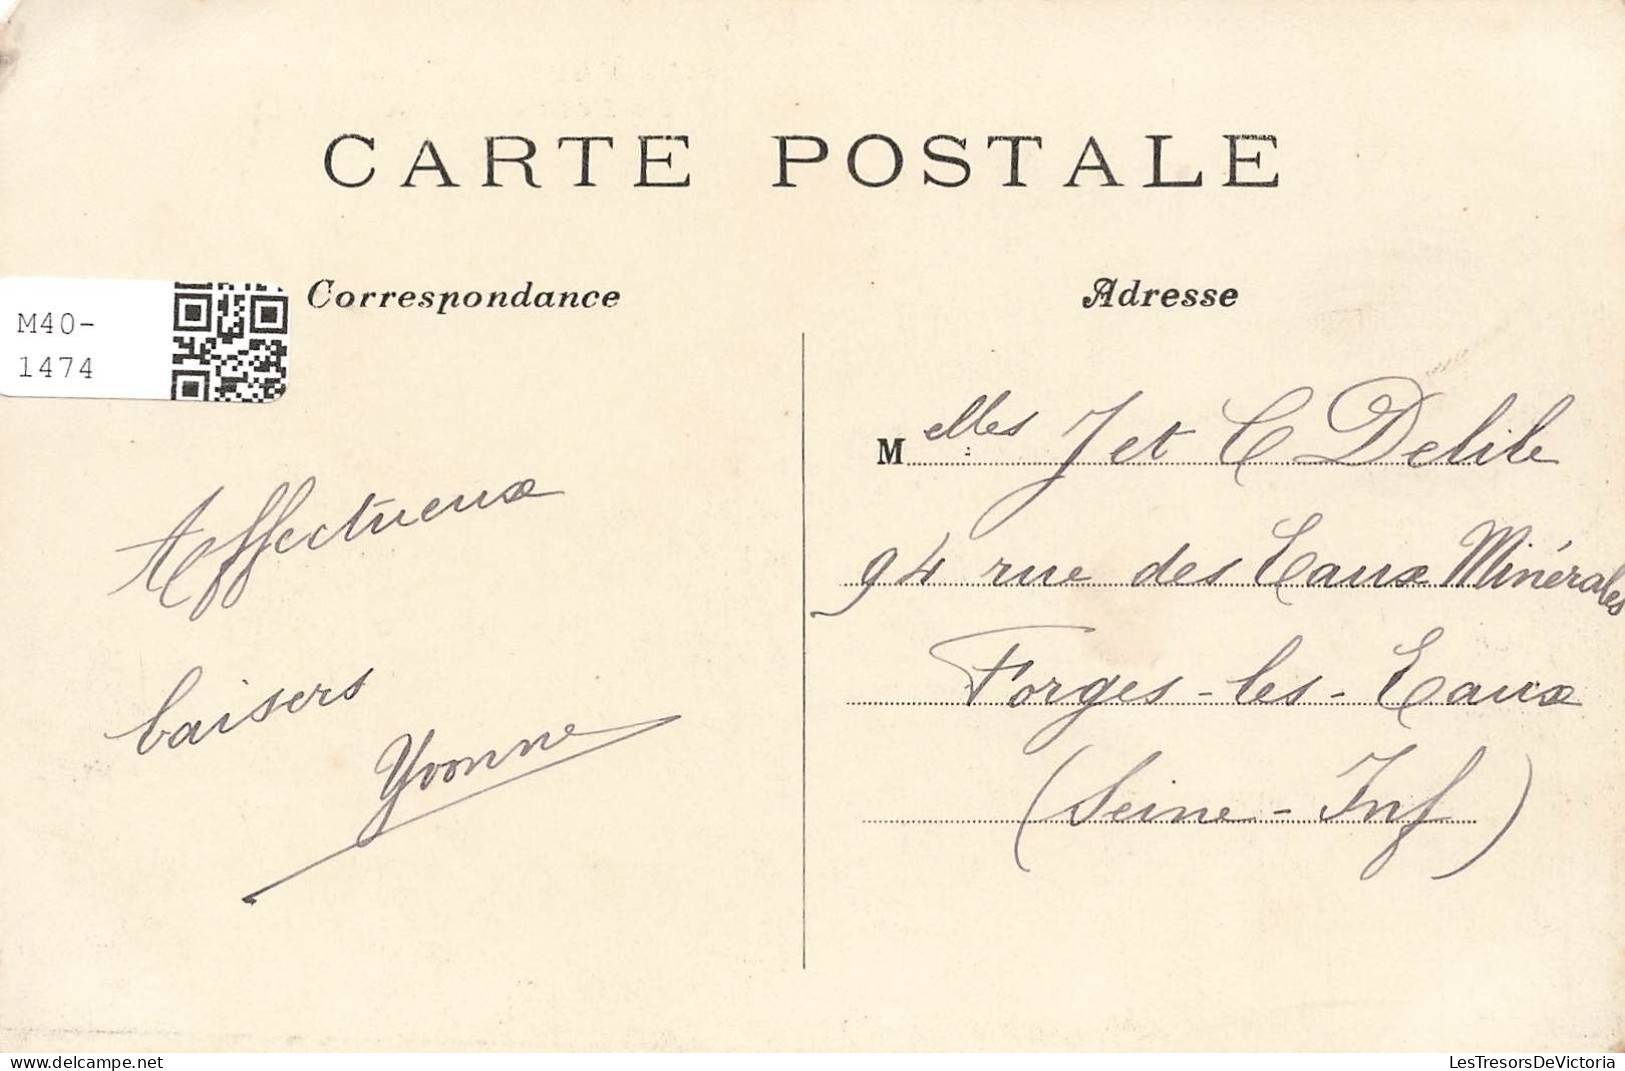 CARTE POSTALE
Correspondance
Adresse
M40-
1474
Affectueux
baisers
Yvonne
Melles J et C Delile
94 rue des Eaux Minérales
Forges-les-Eaux
(Seine-Inf)
delcampe.net
LesTresorsDeVictoria